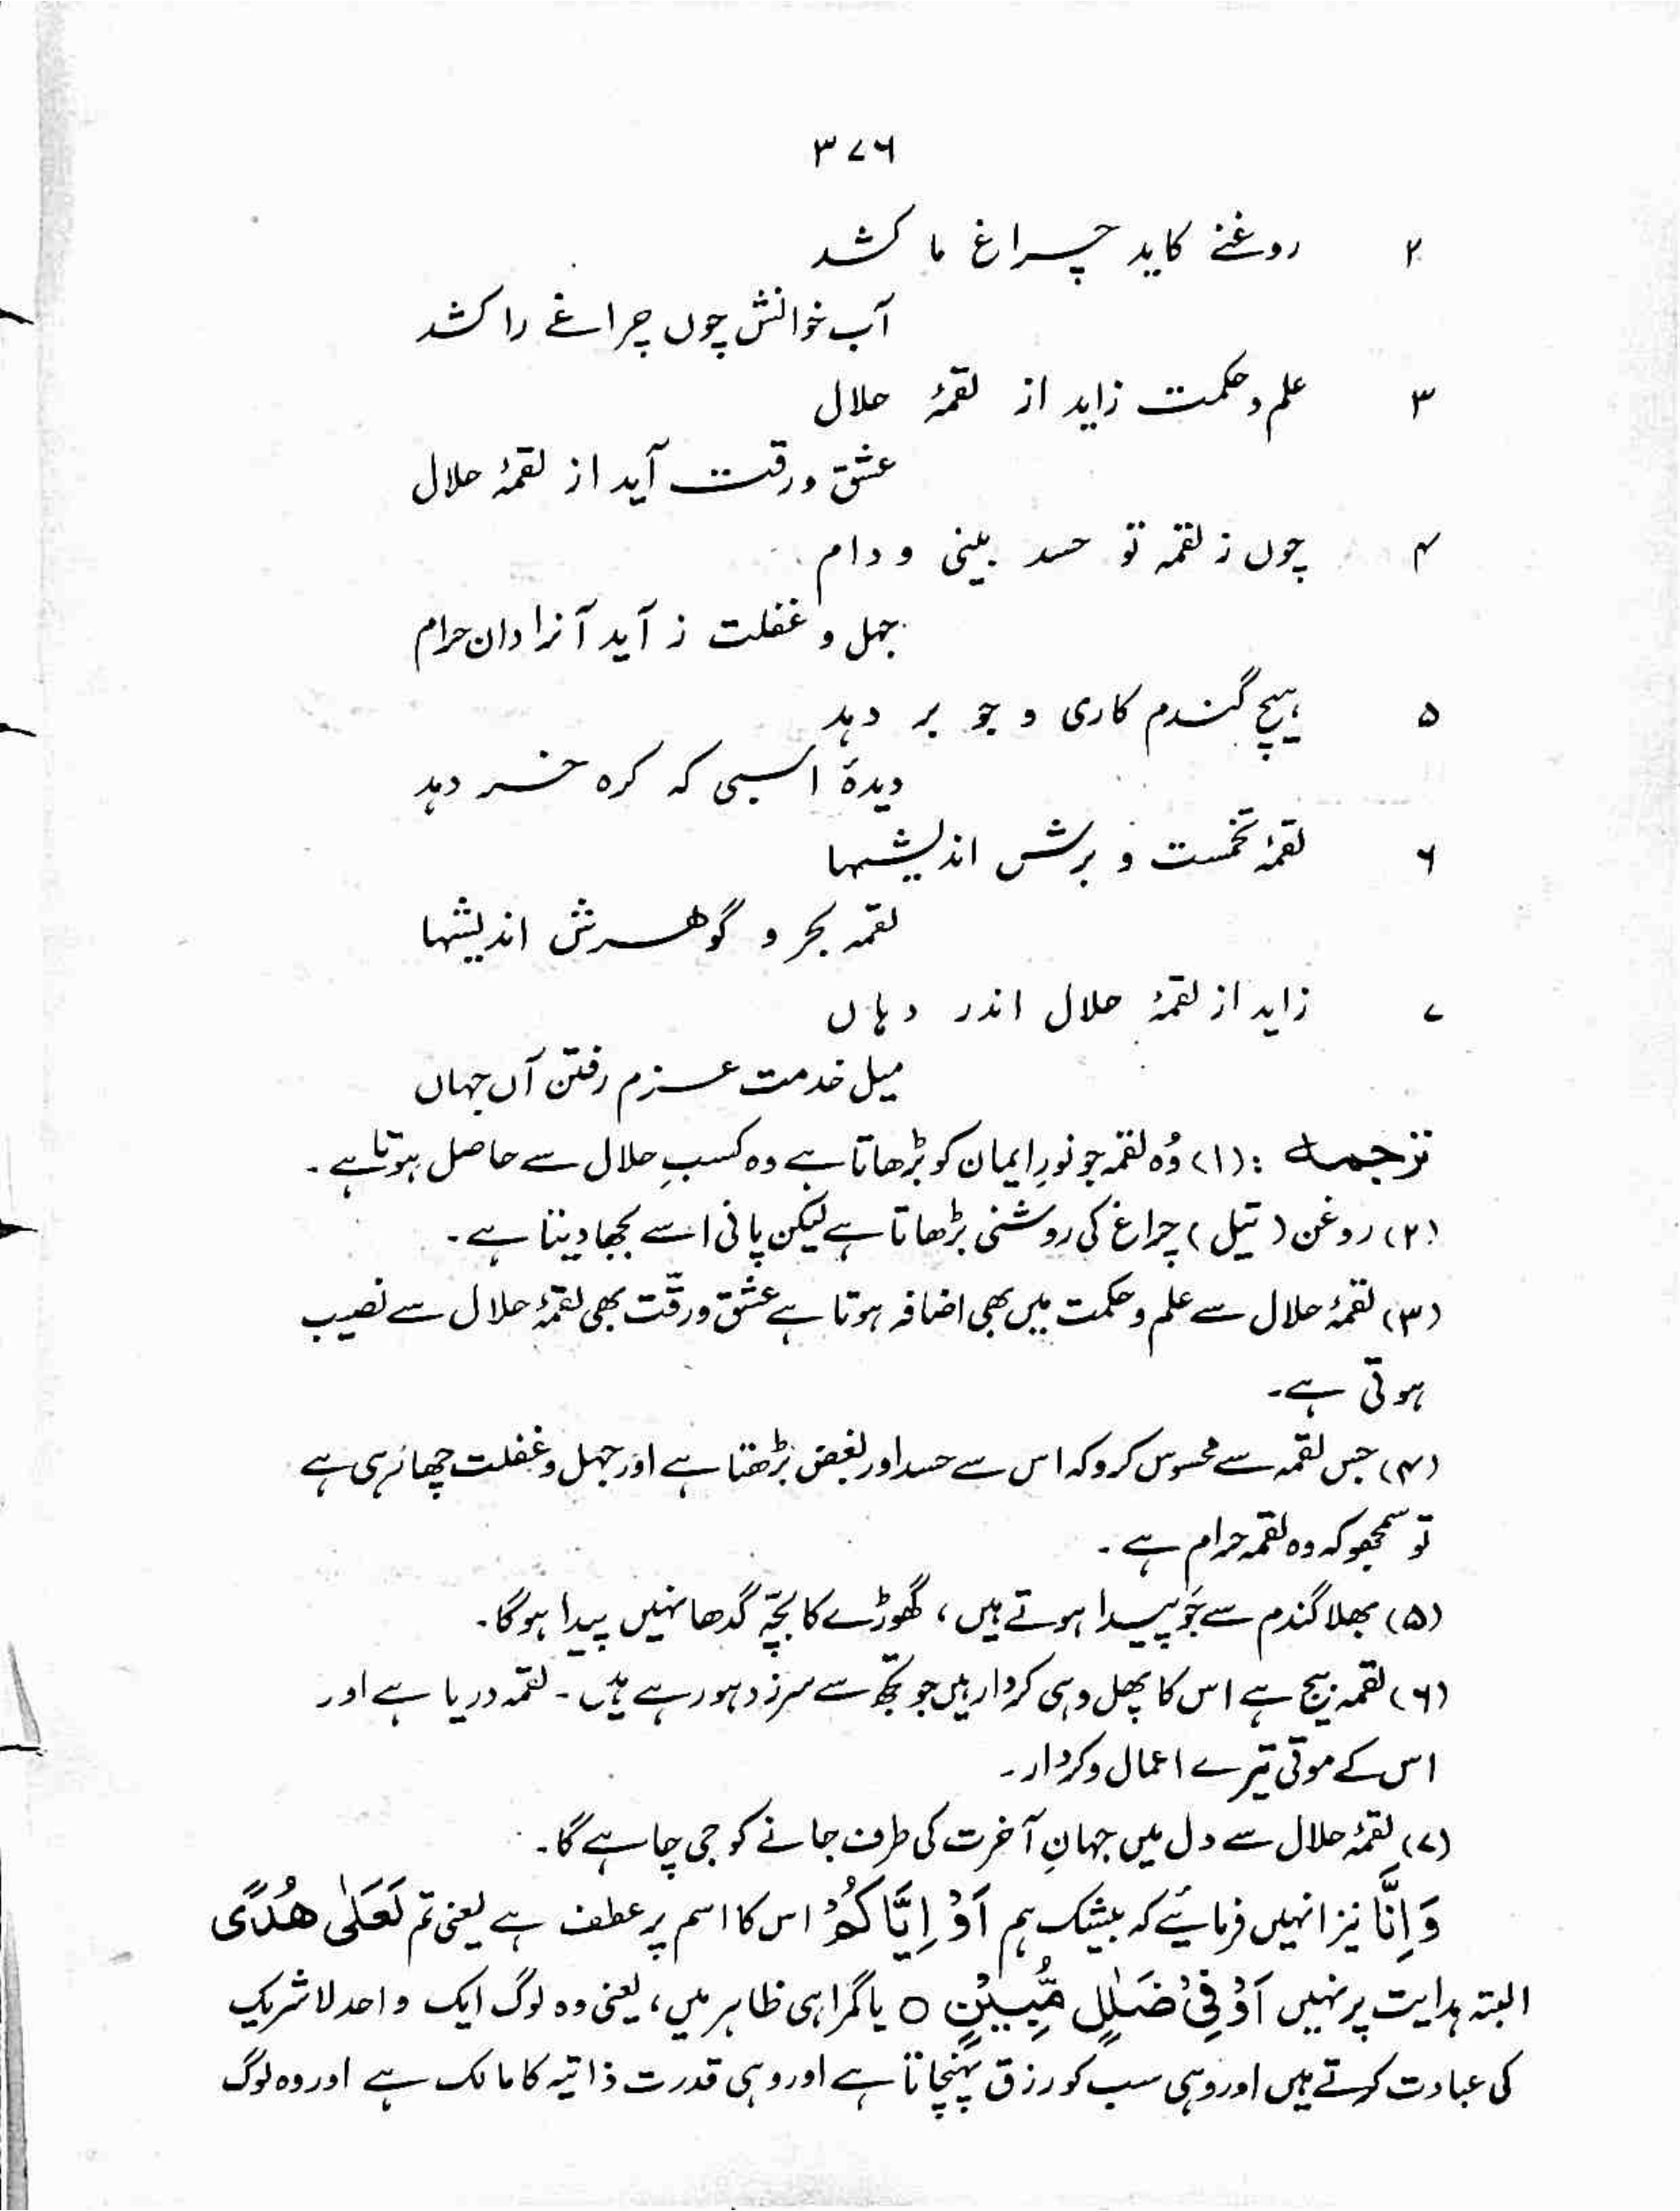 ۳۷۶
۲ روغنے کاید چراغ ما کشد
آب خوانش چوں چراغے را کشد
۳ علم و حکمت زاید از لقمۂ حلال
عشق و رقت آید از لقمۂ حلال
۴ چوں ز لقمہ تو حسد بینی و دام
جہل و غفلت ز آید آنرا دان حرام
۵ ہیچ گندم کاری و جو بر دہد
دیدۂ اسپی کہ کرہ خر دہد
۶ لقمۂ تخمست و برش اندیشہا
لقمہ بحر و گوهرش اندیشہا
۷ زاید از لقمۂ حلال اندر دہاں
میل خدمت عزم رفتن آں جہاں
ترجمہ : (۱) وُہ لقمہ جو نورِ ایمان کو بڑھاتا ہے وہ کسبِ حلال سے حاصل ہوتا ہے ۔
(۲) روغن (تیل) چراغ کی روشنی بڑھاتا ہے لیکن پانی اسے بجھا دیتا ہے ۔
(۳) لقمۂ حلال سے علم و حکمت میں بھی اضافہ ہوتا ہے عشق و رقّت بھی لقمۂ حلال سے نصیب
ہوتی ہے ۔
(۴) جس لقمہ سے محسوس کرو کہ اس سے حسد اور بغض بڑھتا ہے اور جہل و غفلت چھا رہی ہے
تو سمجھو کہ وہ لقمہ حرام ہے ۔
(۵) بھلا گندم سے جَو پیدا ہوتے ہیں ، گھوڑے کا بچّہ گدھا نہیں پیدا ہوگا ۔
(۶) لقمہ بیج ہے اس کا پھل وہی کردار ہیں جو تجھ سے سرزد ہو رہے ہیں ۔ لقمہ دریا ہے اور
اس کے موتی تیرے اعمال و کردار ۔
(۷) لقمۂ حلال سے دل میں جہانِ آخرت کی طرف جانے کو جی چاہے گا ۔
وَاِنَّا نیز انہیں فرمائیے کہ بیشک ہم اَوْ اِیَّاکُمْ اس کا اسم پر عطف ہے یعنی تم لَعَلٰی ھُدًی
البتہ ہدایت پر نہیں اَوْ فِیْ ضَلٰلٍ مُّبِیْنٍ ○ یا گمراہی ظاہر میں ، یعنی وہ لوگ ایک واحد لاشریک
کی عبادت کرتے ہیں اور وہی سب کو رزق پہنچاتا ہے اور وہی قدرت ذاتیہ کا مالک ہے اور وہ لوگ